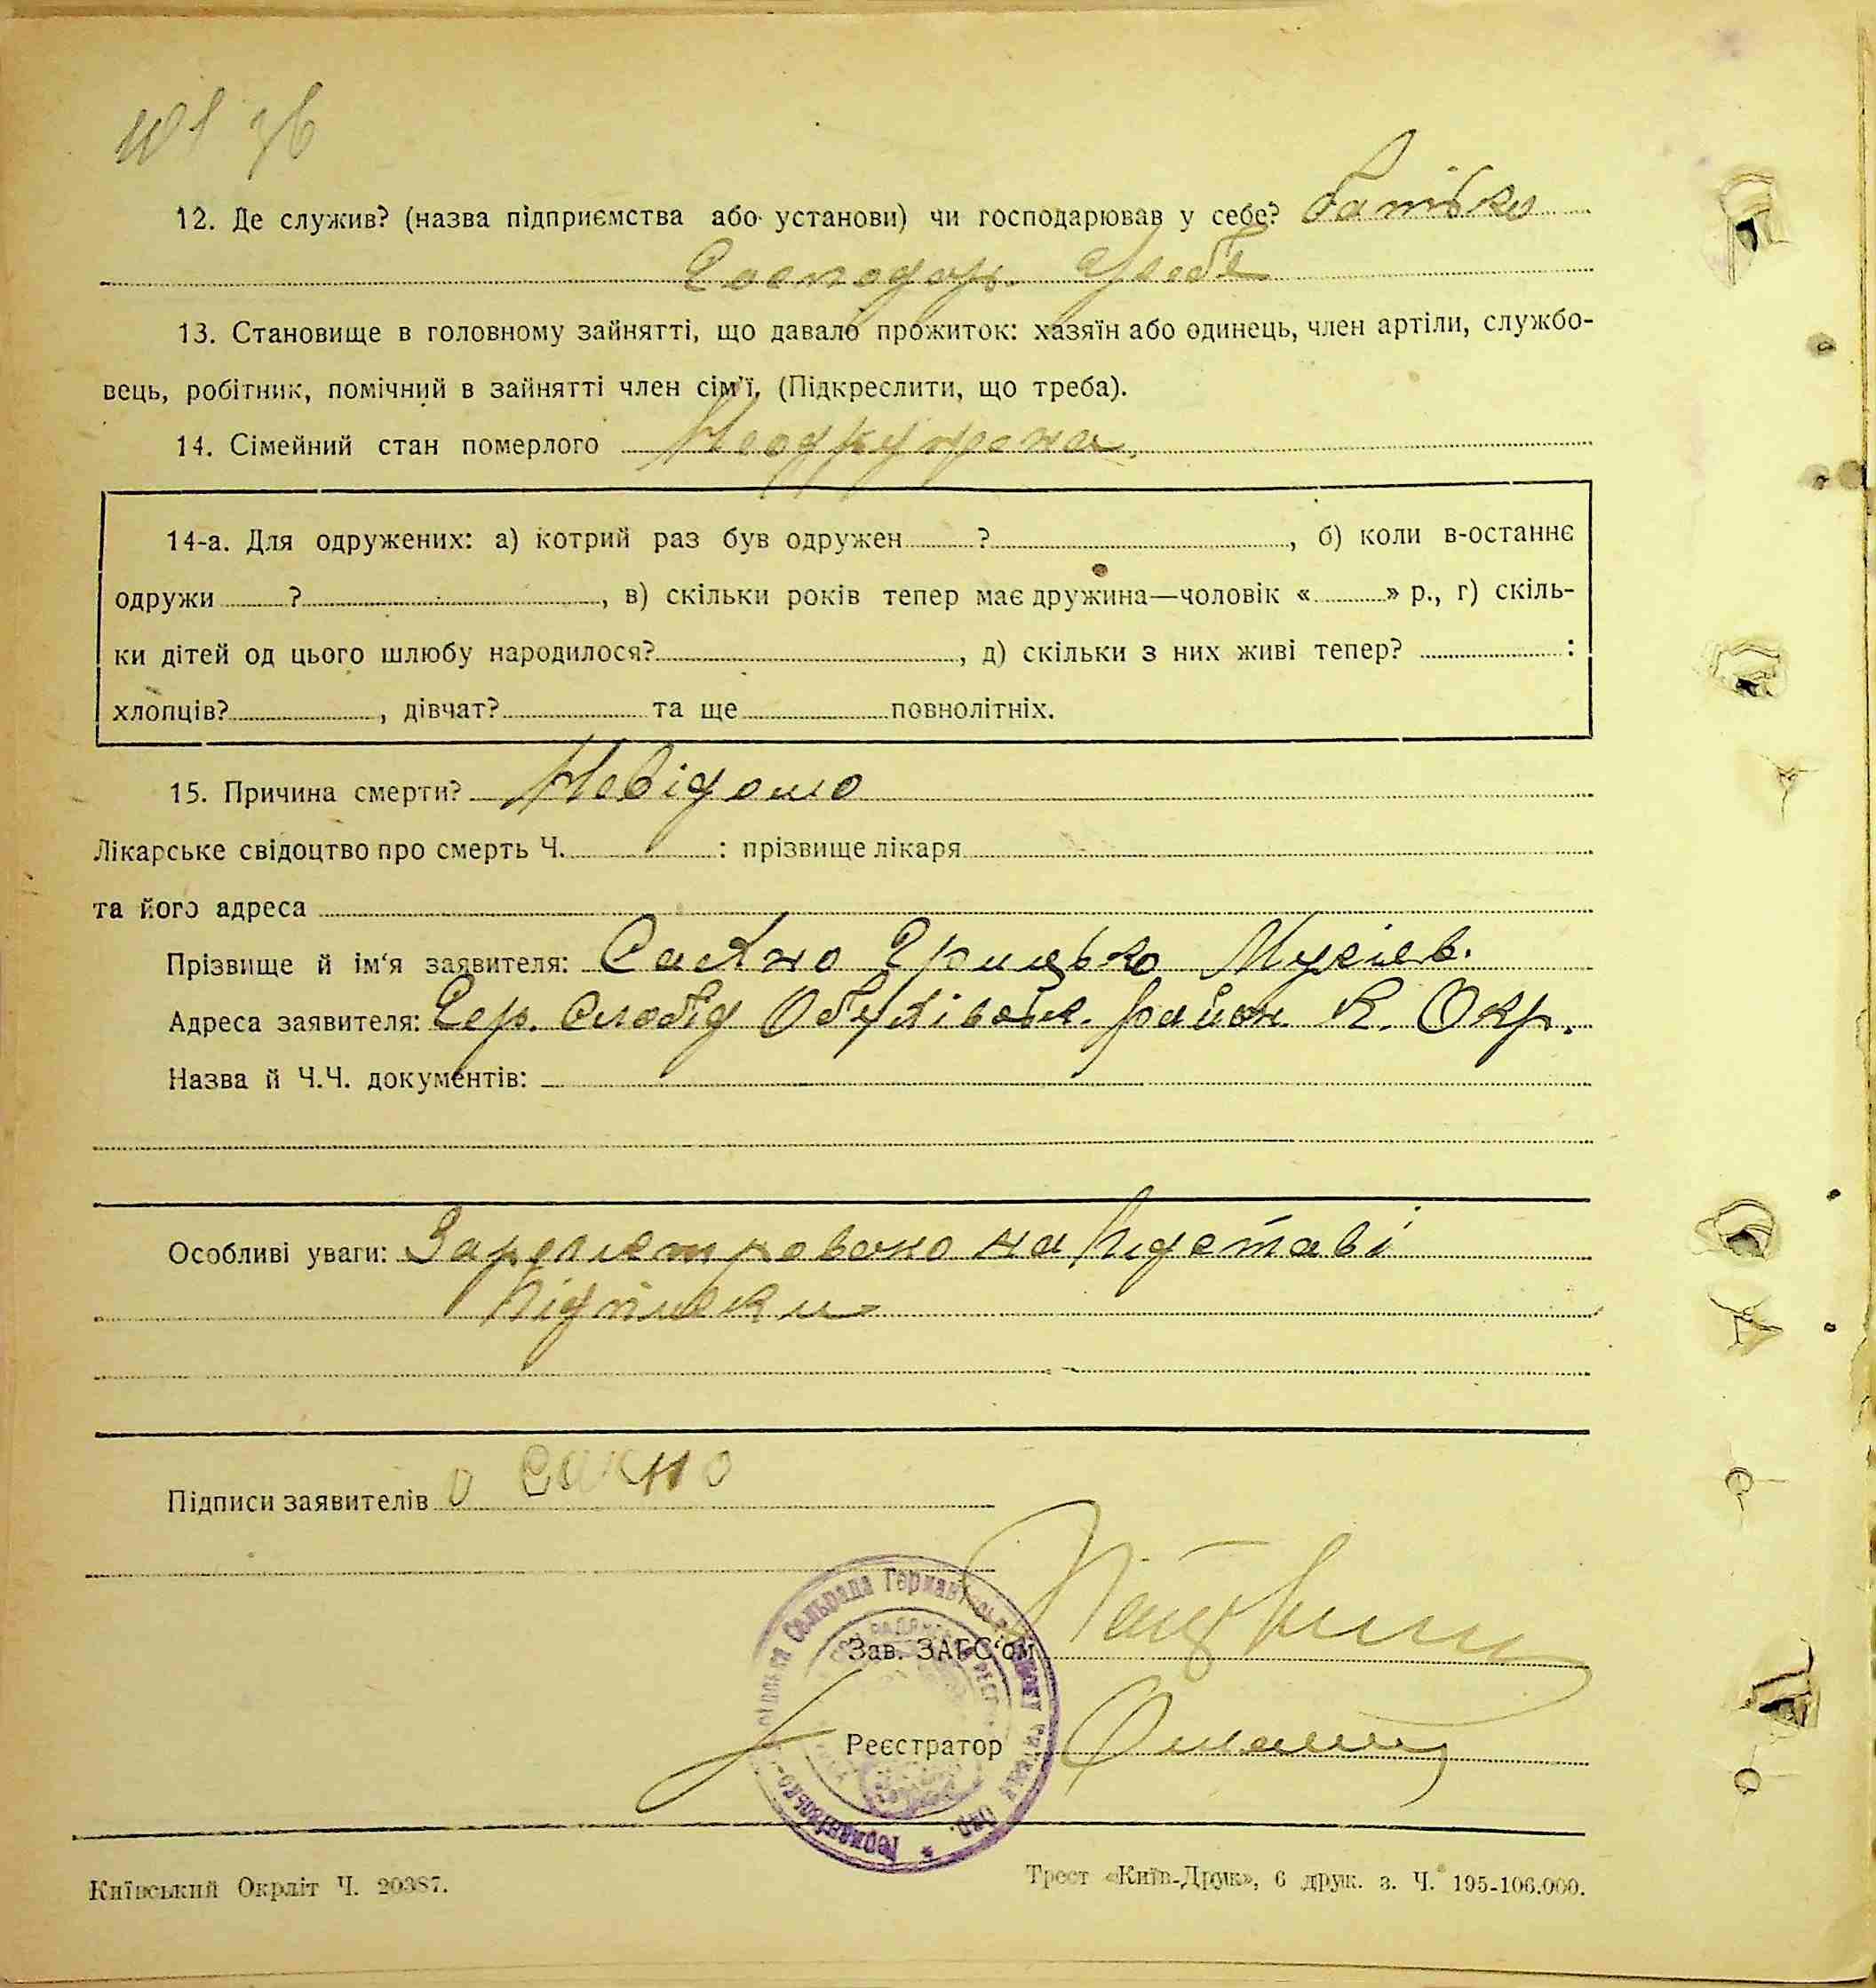 12. Де служив? (назва підприємства або установи) чи господарював у себе? батько
Господар. у себе
13. Становище в головному зайнятті, що давало прожиток: хазяїн або одинець, член артіли, службо-
вець, робітник, помічний в зайнятті член сім'ї. (Підкреслити, що треба).
14. Сімейний стан померлого
14-а. Для одружених: а) котрий раз був одружен ?, б) коли в-останнє
одружи ?, в) скільки років тепер має дружина—чоловік « » р., г) скіль-
ки дітей од цього шлюбу народилося?, д) скільки з них живі тепер? :
хлопців?, дівчат? та ще повнолітніх.
15. Причина смерти? Невідомо
Лікарське свідоцтво про смерть Ч. : прізвище лікаря
та його адреса
Прізвище й ім'я заявителя: Сахно Грицько Мусіев.
Адреса заявителя: Гер. Слобід Обухівськ. район К. Окр.
Назва й Ч.Ч. документів:
Особливі уваги: Зарегистровано на підставі
підписки
Підписи заявителів Сахно
Зав. ЗАГС'ом
Реєстратор
Київський Окрліт Ч. 20387.
Трест «Київ-Друк», 6 друк. з. Ч. 195-106.000.